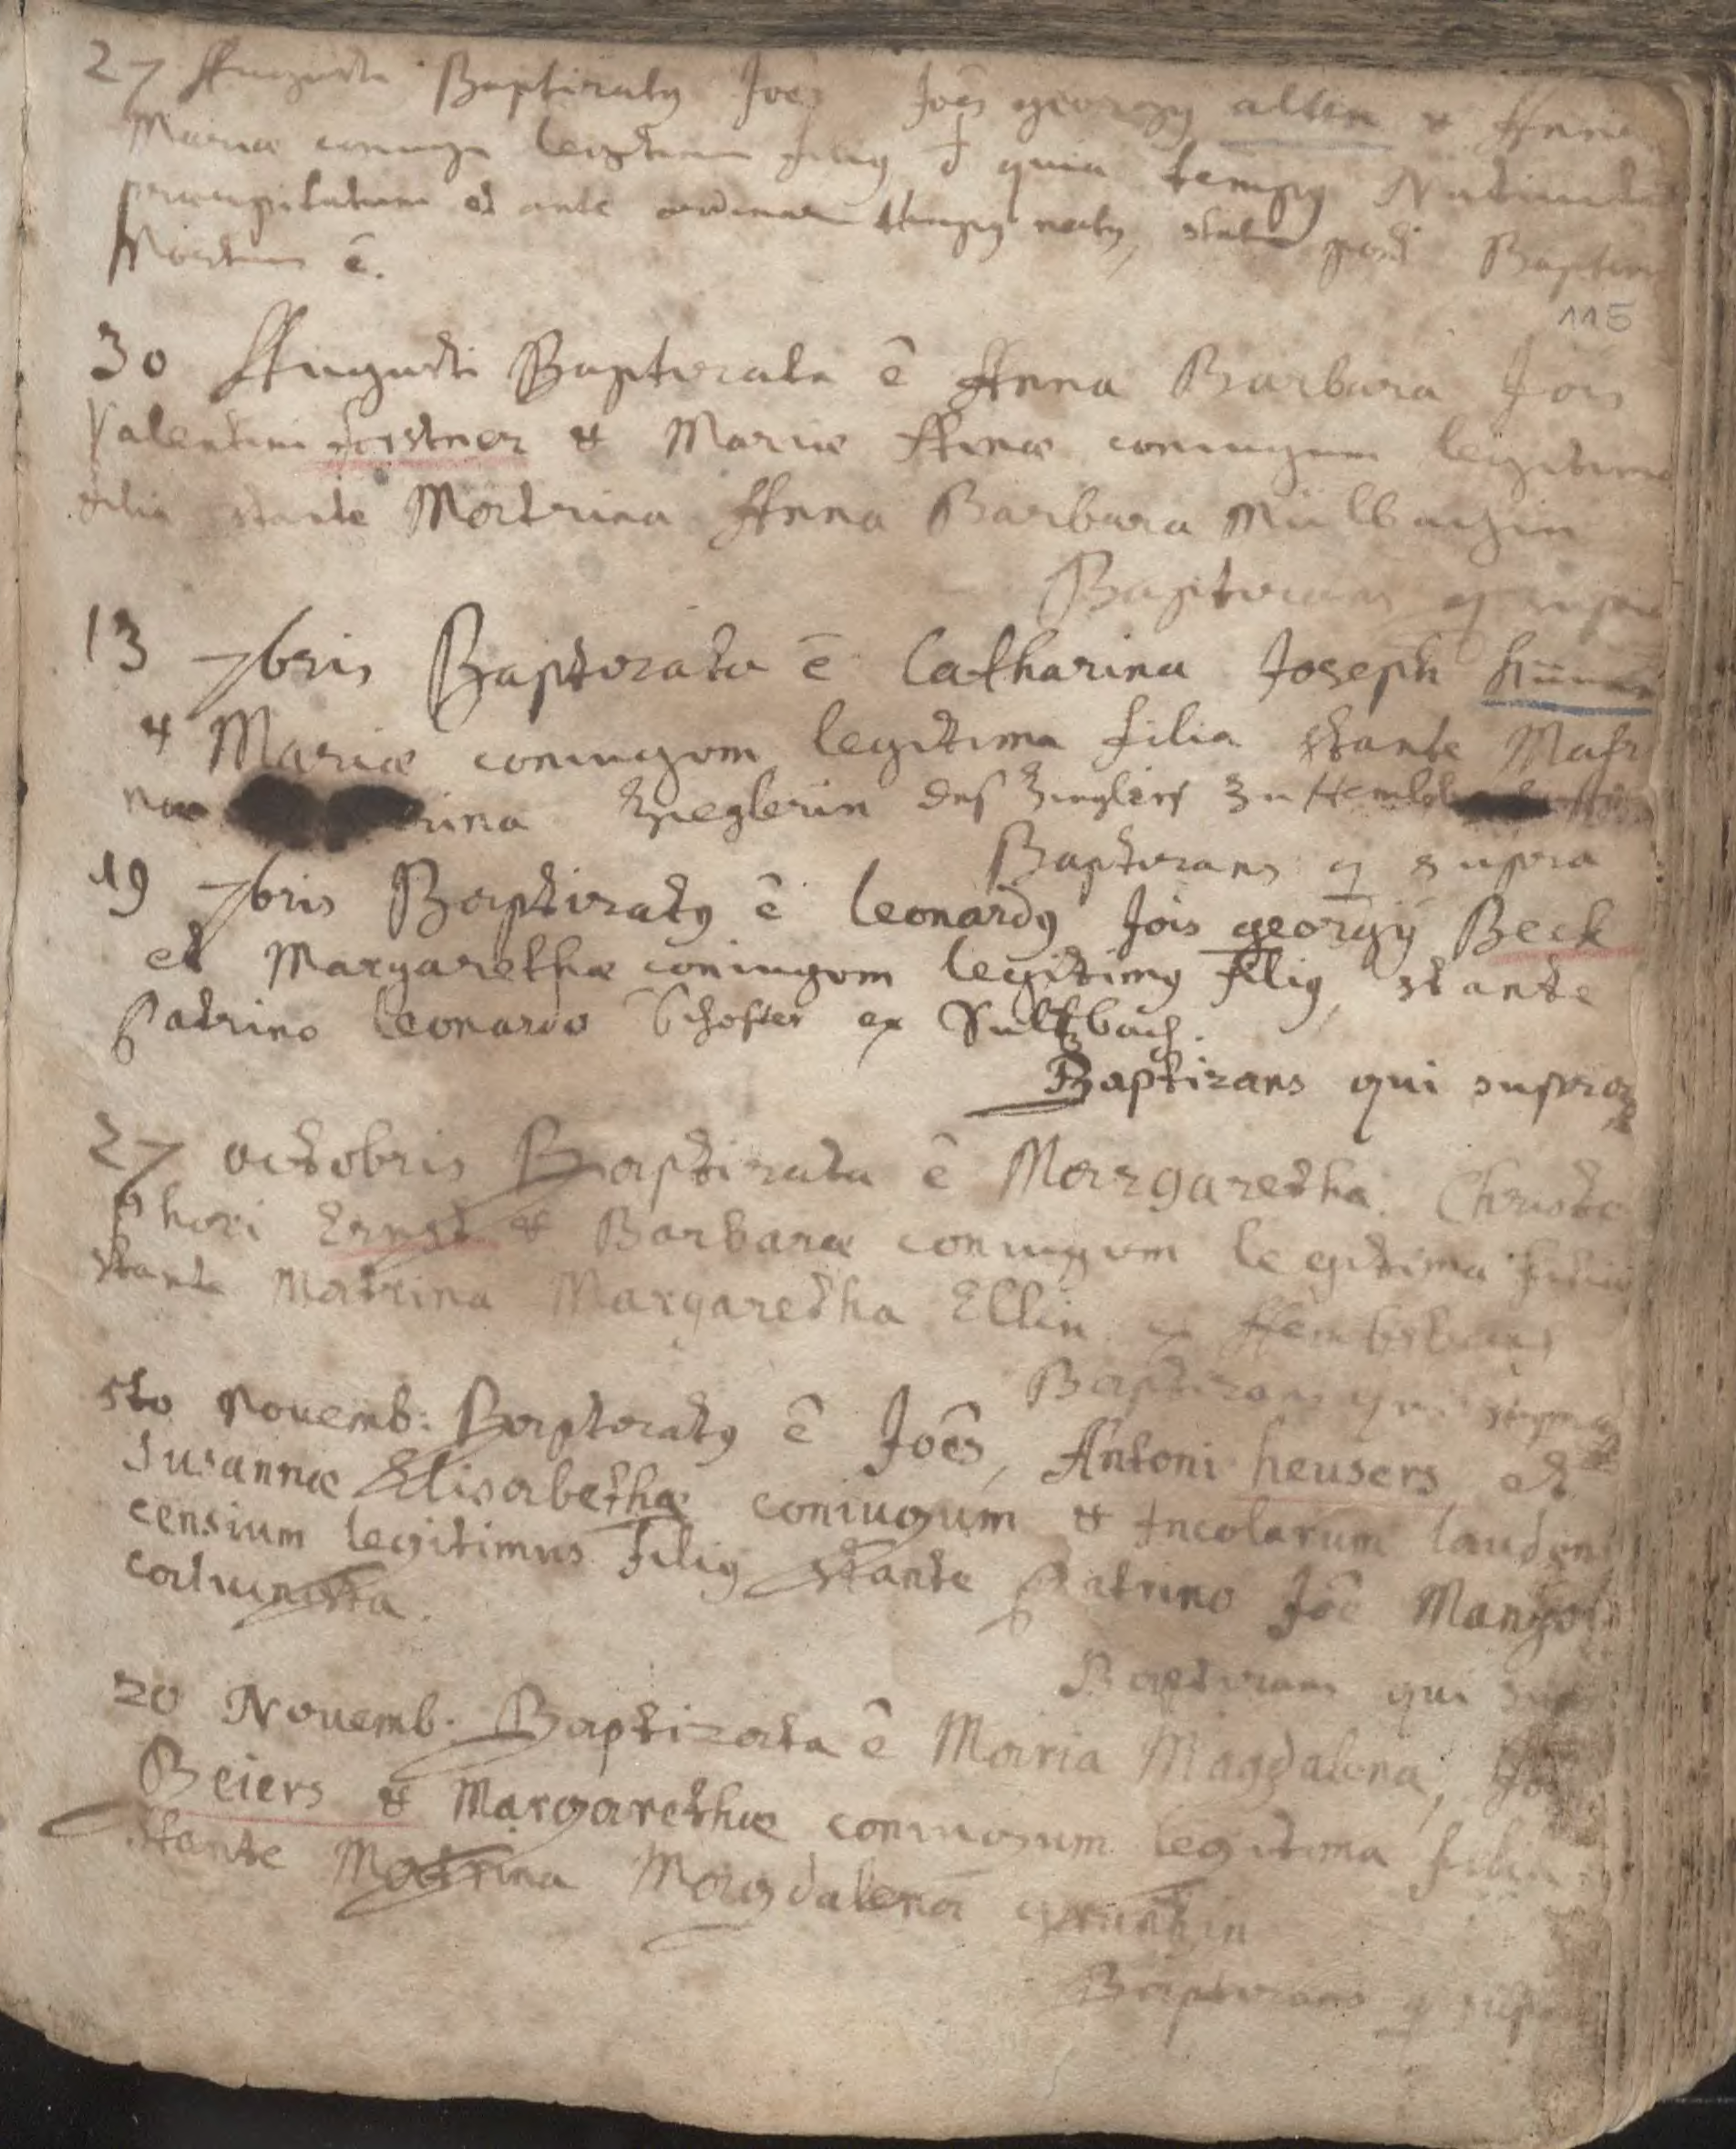 27 Augusti Baptizatus Joēs Joēs georgy alten & Annæ
Mariæ coniugū legitimus filius quia tempus Nativita
præcipitatum et ante ordinar tempus natus, statim post Baptis
Mortuus ē.
115
30 Augusti Baptizata ē Anna Barbara Jois
Valentini forstner & Mariæ Annæ coniugum legitima
filia stante Matrina Anna Barbara Mülbachin
Baptizans q supra
13 7bris Baptizata ē Catharina Joseph
& Mariæ coniugum legitima filia stante Matr
na rina Zieglerin deß Zieglers Zu
Baptizans q supra
19 7bris Baptizatus ē leonardus Jois georgÿ Beck
et Margarethæ coniugum legitimus filius, stante
Patrino leonardo Schofter ex Sultzbach.
Baptizans qui supra
27 octobris Baptizata ē Margaretha. Christo
phori Ernst & Barbaræ coniugum legitima filia
stante Matrina Margaretha Ellin ex Hembsbach
Baptizans qui supra
5to Novemb: Baptizatus ē Joēs, Antoni heusers et
Susannæ Elisabethæ coniugum & Incolarum lauden
censium legitimus filius stante Patrino Joē Mangol
calvinista.
Baptizans qui sup
20 Novemb. Baptizata ē Maria Magdalena,
Beiers & Margarethæ coniugum legitima filia
stante Matrina Magdalena
Baptizans q supra